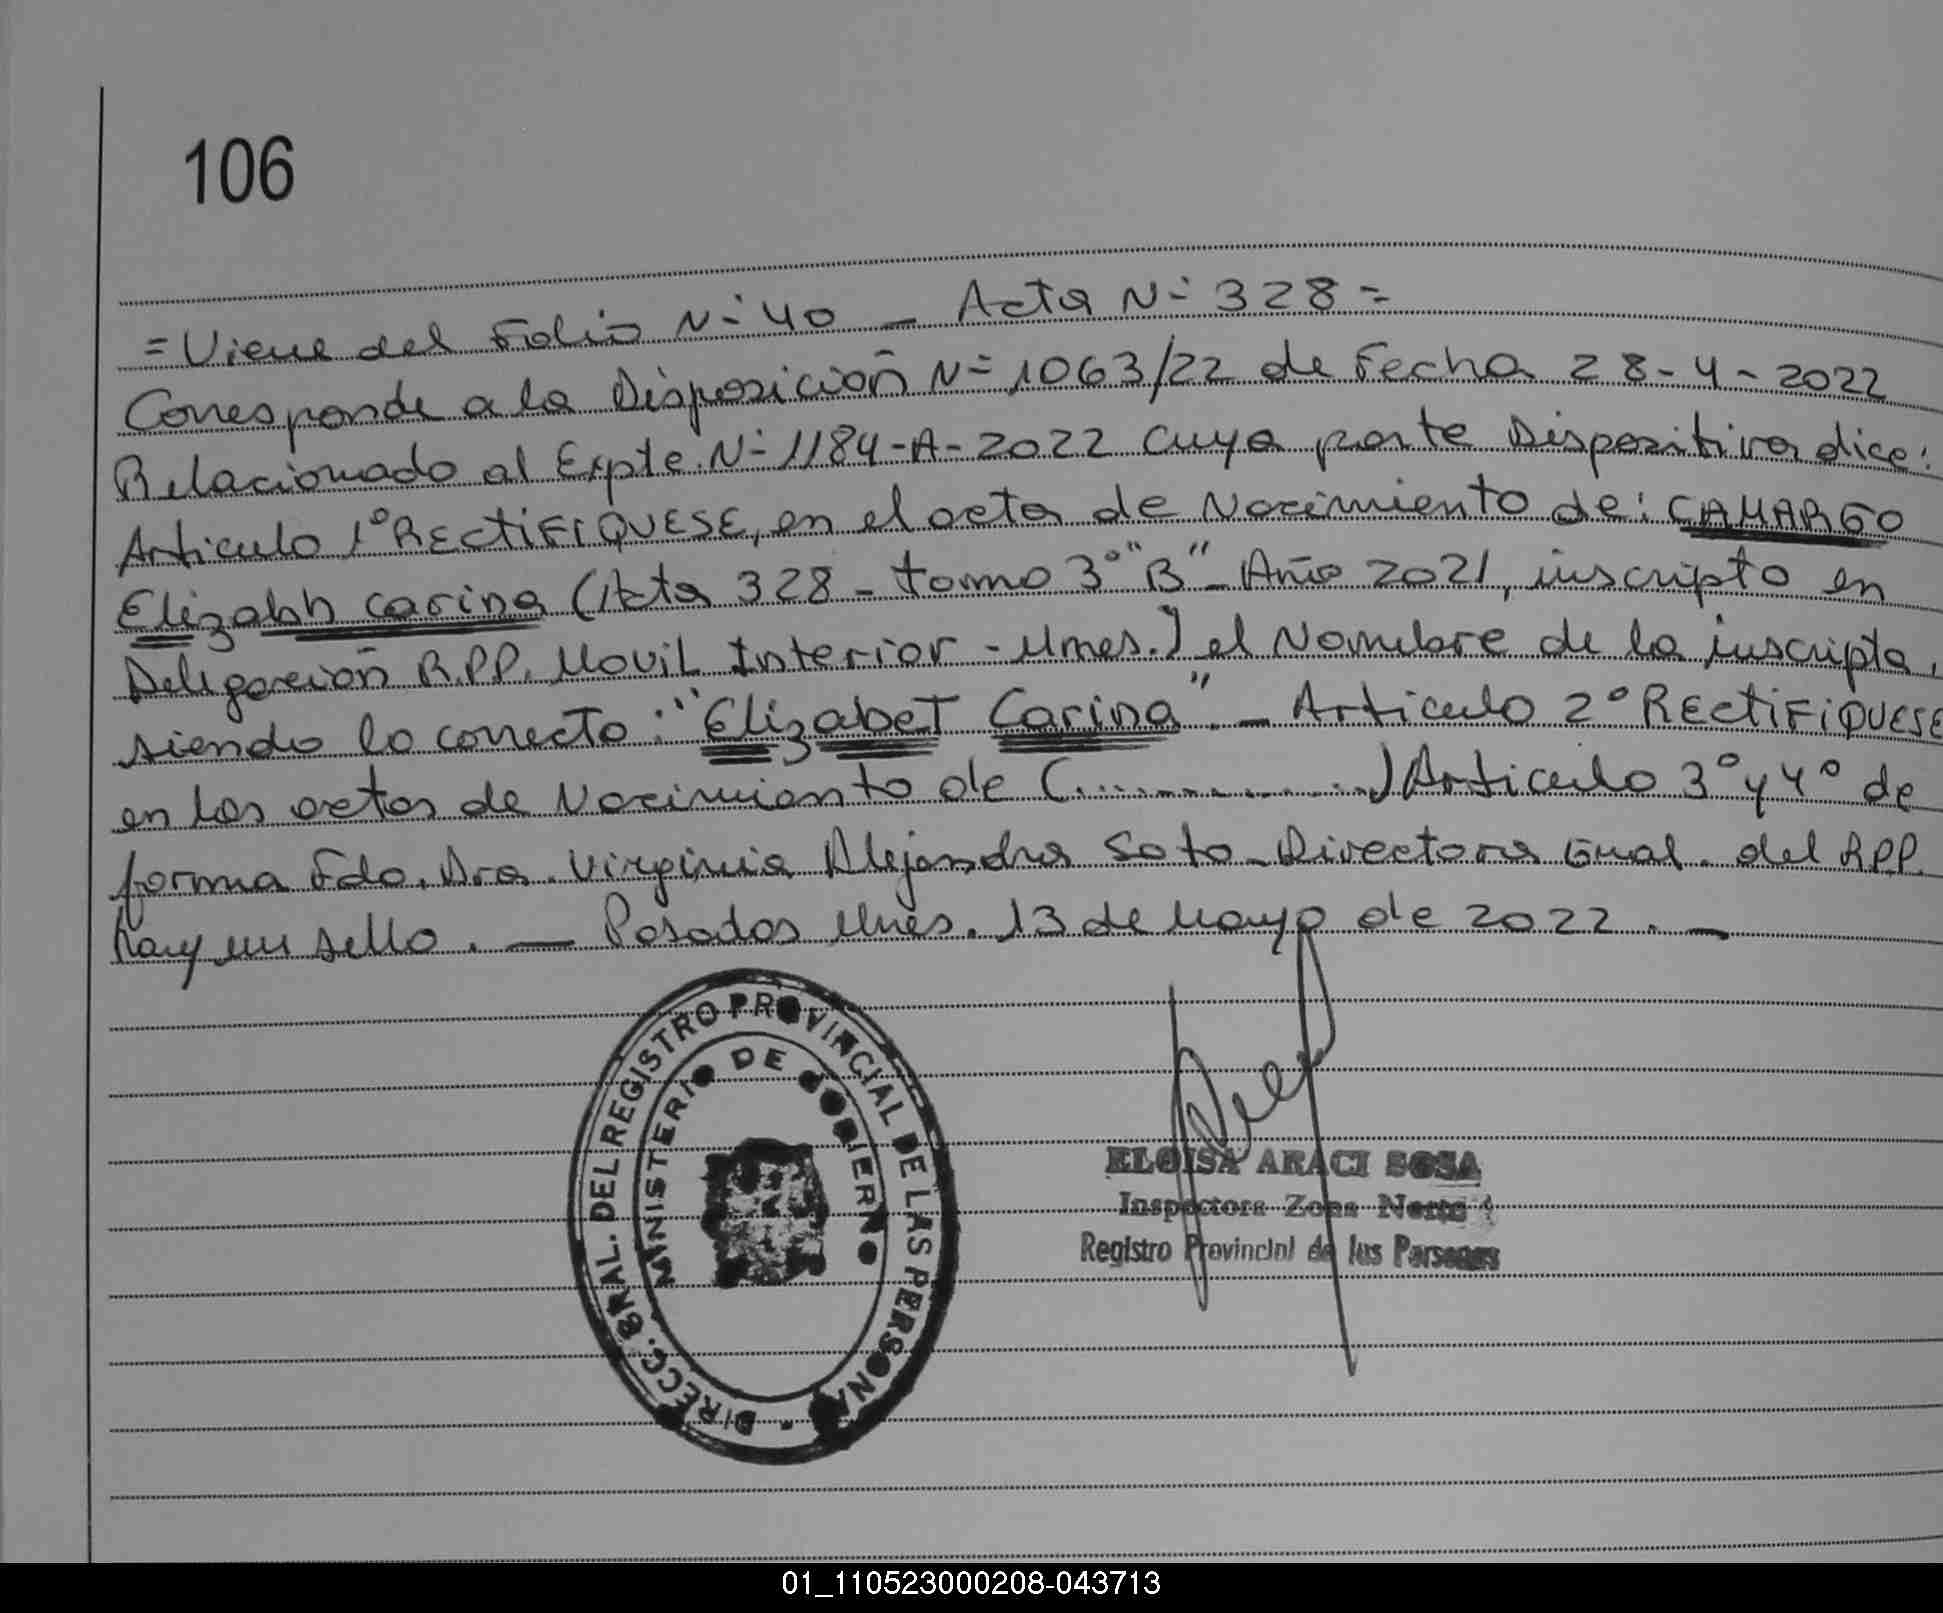 106
= Viene del Folio N- 40 — Acta N- 328 =
Corresponde a la Disposición N- 1063/22 de Fecha 28-4-2022
Relacionado al Expte. N- 1184-A-2022 cuya parte Dispositiva dice:
Articulo 1° RECTIFIQUESE, en el acta de Nacimiento de: CAMARGO
Elizabh Carina (Acta 328 - tomo 3° "B" - Año 2021, inscripto en
Delegación R.P.P. Movil Interior - Mnes.) el Nombre de la inscripta,
siendo lo correcto: "Elizabet Carina". — Articulo 2° RECTIFIQUESE
en las actas de Nacimiento de (..............) Articulo 3° y 4° de
forma Fdo. Dra. Virginia Alejandra Soto - Directora Gnal. del RPP.
hay un sello. — Posadas Mnes. 13 de Mayo de 2022. —
DIRECC. GRAL. DEL REGISTRO PROVINCIAL DE LAS PERSONAS
MINISTERIO DE GOBIERNO
ELOISA ARACI SOSA
Inspectora Zona Norte
Registro Provincial de las Personas
01_110523000208-043713